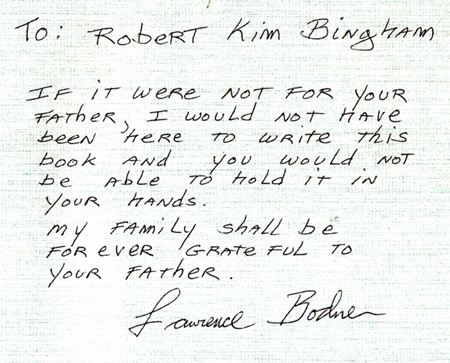 To: Robert Kim Bingham
If it were not for your
father, I would not have
been here to write this
book and you would not
be able to hold it in
your hands.
my family shall be
for ever grateful to
your father.
Lawrence Bodner